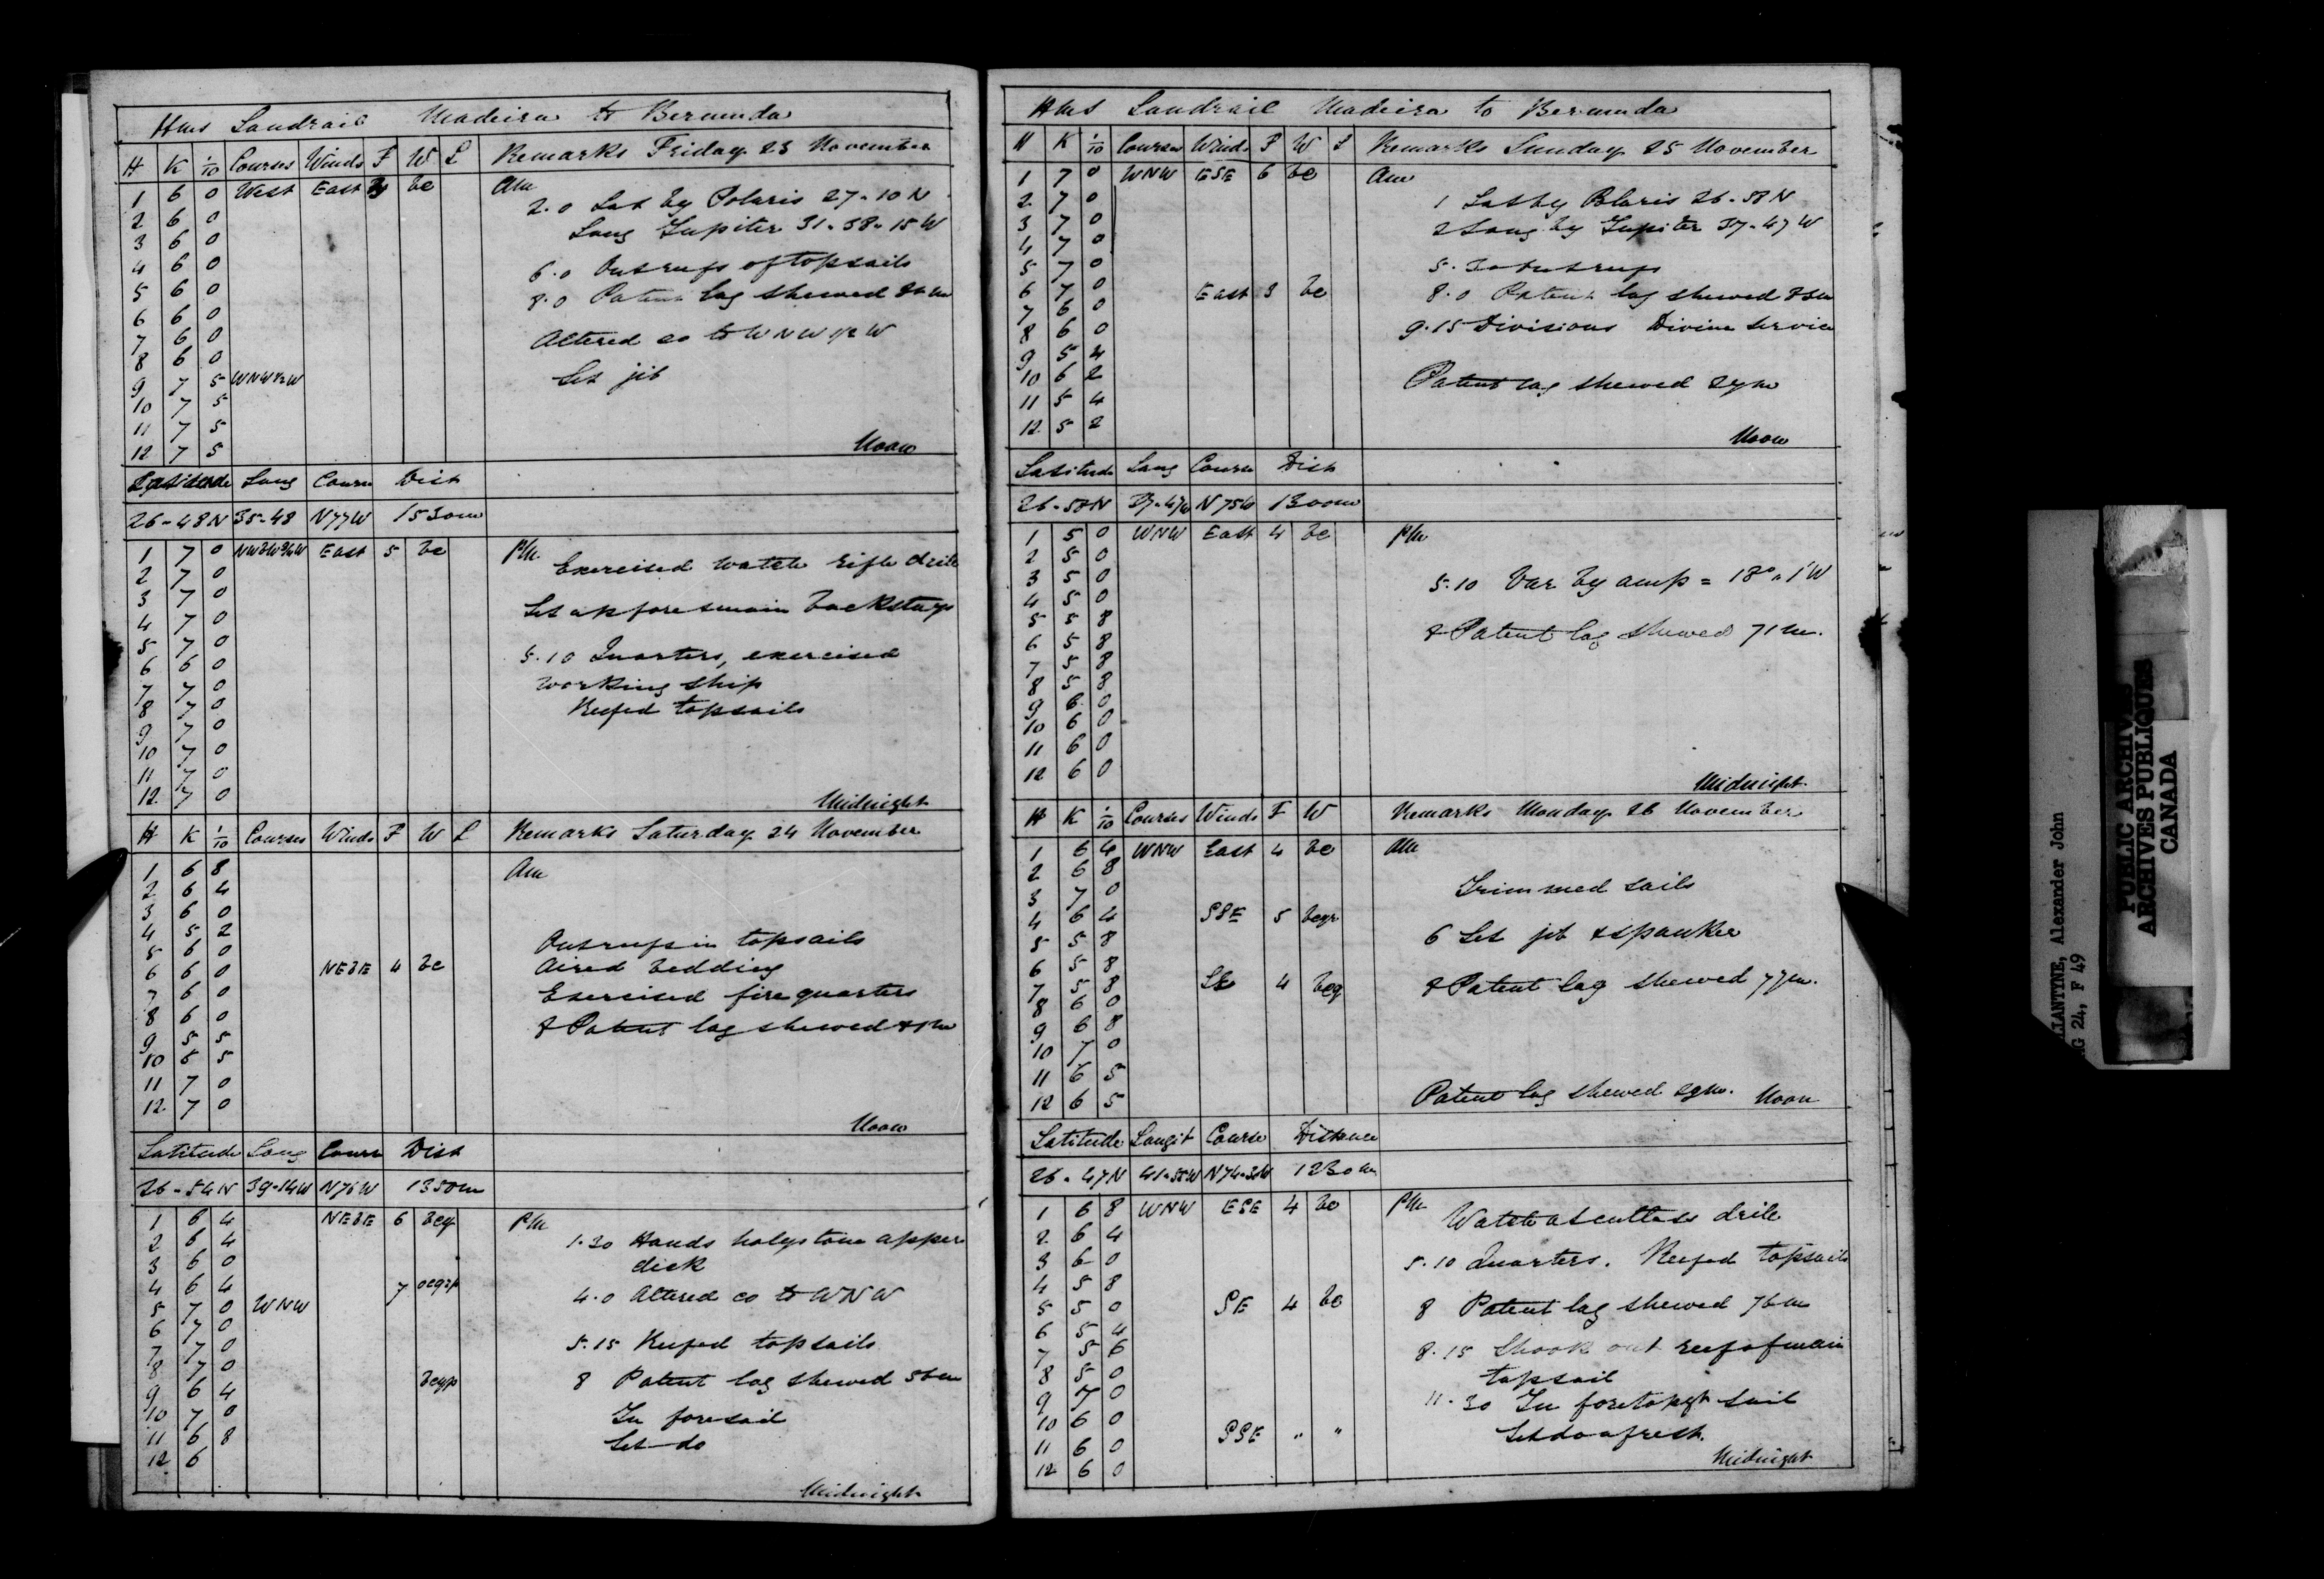 Hms Landrail Madeira to Bermuda
H K 1/10 Courses Winds F W L Remarks Friday 23 November
1 6 0 West East bc Am
2 6 0 2.0 Lat by Polaris 27-10 N
3 6 0 Long Jupiter 31-58-15 W
4 6 0 6.0 Out reefs of topsails
5 6 0 8.0 Patent log shewed
6 6 0
7 6 0 Altered co to WNW 1/2 W
8 6 0 Set jib
9 7 5 WNW 1/2 W
10 7 5
11 7 5
12 7 5 Noon
Latitude Long Course Dist
26-48 N 35-48 N77W 1530m
1 7 0 NWbW3/4W East 5 bc PM
2 7 0 Exercised watch rifle drill
3 7 0 Set up fore & main backstays
4 7 0
5 7 0 5.10 Quarters, exercised
6 6 0 working ship
7 7 0 Reefed topsails
8 7 0
9 7 0
10 7 0
11 7 0
12 7 0 Midnight
H K 1/10 Courses Winds F W L Remarks Saturday 24 November
1 6 8 Am
2 6 4
3 6 0
4 5 2 Out reefs in topsails
5 6 0 Aired bedding
6 6 0 NEbE 4 bc
7 6 0 Exercised fire quarters
8 6 0 8 Patent log shewed
9 5 5
10 6 5
11 7 0
12 7 0 Noon
Latitude Long Course Dist
26-54 N 39-14W N76W 1350m
1 6 4 NEbE 6 bcq PM
2 6 4 1.30 Hands holystone upper
3 6 0 deck
4 6 4 7 ocqrp 4.0 Altered co to WNW
5 7 0 WNW
6 7 0 5.15 Reefed topsails
7 7 0
8 7 0 bcqp 8 Patent log shewed 56m
9 6 4
10 7 0 In foresail
11 6 8 Set do
12 6 Midnight
Hms Landrail Madeira to Bermuda
H K 1/10 Courses Winds F W L Remarks Sunday 25 November
1 7 0 WNW ESE 6 bc Am
2 7 0 1 Lat by Polaris 26-58 N
3 7 0 & Long by Jupiter 37-47 W
4 7 0
5 7 0 5.30 Out reefs
6 7 0 East 3 bc 8.0 Patent log shewed 83m
7 6 0
8 6 0 9.15 Divisions Divine Service
9 5 4
10 6 2 Patent log shewed 24m
11 5 4
12 5 2 Noon
Latitude Long Course Dist
26-50N 39-47W N75W 1300m
1 5 0 WNW East 4 bc PM
2 5 0
3 5 0 5.10 Var by amp = 18°.1'W
4 5 0
5 5 8 8 Patent log shewed 71m.
6 5 8
7 5 8
8 5 8
9 6 0
10 6 0
11 6 0
12 6 0 Midnight
H K 1/10 Courses Winds F W Remarks Monday 26 November
1 6 4 WNW East 4 bc AM
2 6 8
3 7 0 Trimmed sails
4 6 4 SSE 5 bcqr
5 5 8 6 Set jib & spanker
6 5 8
7 5 8 SE 4 bcq 8 Patent log shewed 77m.
8 6 0
9 6 8
10 7 0
11 6 5
12 6 5 Patent log shewed Noon
Latitude Longit Course Distance
26-47N 41-58W N74-30W 1230m
1 6 8 WNW ESE 4 bc PM
2 6 4 Watch at cutlass drill
3 6 0 5.10 Quarters. Reefed topsails
4 5 8
5 5 0 SE 4 bc 8 Patent log shewed 76m
6 5 4
7 5 6 8.15 Shook out reef of main
8 5 0 topsail
9 7 0 11.30 In foretopgt sail
10 6 0
11 6 0 SSE " " Set do afresh.
12 6 0 Midnight
LIANTYNE, Alexander John
G 24, F 49
PUBLIC ARCHIVES
ARCHIVES PUBLIQUES
CANADA